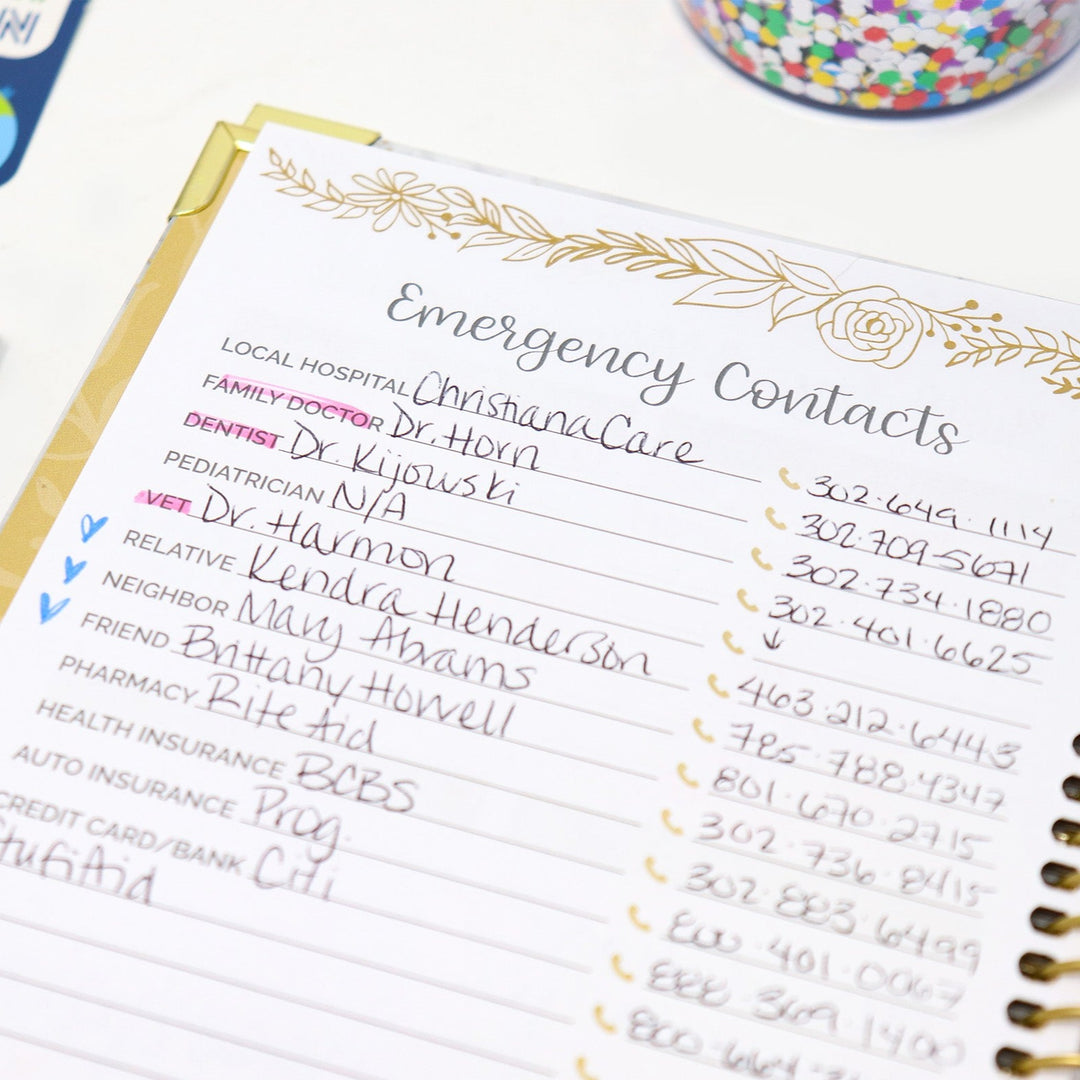 Emergency Contacts
LOCAL HOSPITAL ChristianaCare 302.649.1114
FAMILY DOCTOR Dr. Horn 302.709.5671
DENTIST Dr. Kijowski 302.734.1880
PEDIATRICIAN N/A 302.401.6625
VET Dr. Harmon ↓
RELATIVE Kendra Henderson 463.212.6443
NEIGHBOR Mary Abrams 785.788.4347
FRIEND Brittany Howell 801.670.2715
PHARMACY Rite Aid 302.736.8415
HEALTH INSURANCE BCBS 302.883.6499
AUTO INSURANCE Prog. 800.401.0067
CREDIT CARD/BANK Citi 888.369.1400
800